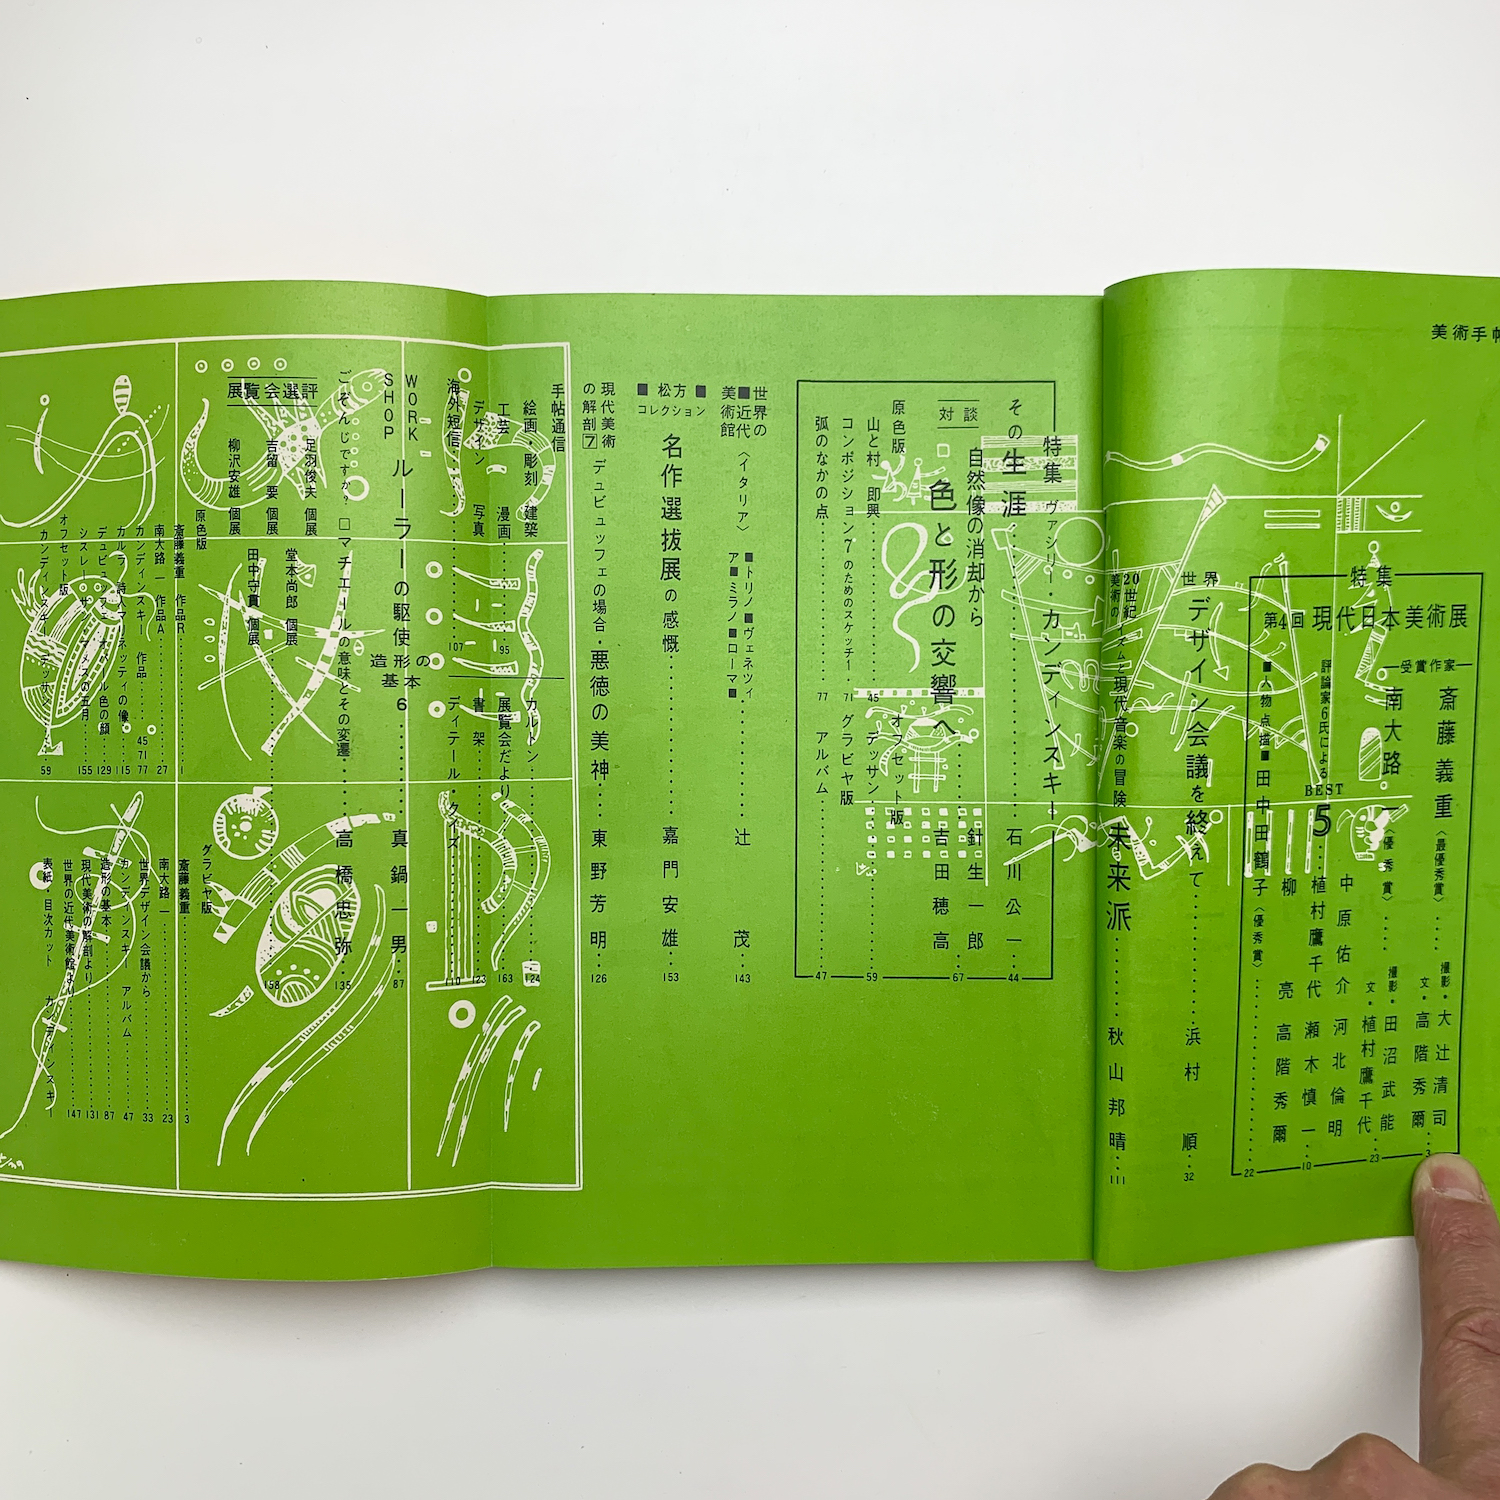 美術手帖
特集
第4回 現代日本美術展
受賞作家
斎藤義重〈最優秀賞〉……撮影・大辻清司
文・高階秀爾…3
南大路 一〈優秀賞〉……撮影・田沼武能
文・植村鷹千代…23
評論家6氏による
BEST 5
中原佑介 河北倫明
植村鷹千代 瀬木慎一…10
柳 亮 高階秀爾
■人物点描■田中田鶴子〈優秀賞〉……22
世界デザイン会議を終えて……浜村 順…32
20世紀美術のイズムと現代音楽の冒険 未来派……秋山邦晴…111
特集 ヴァシリー・カンディンスキー
その生涯……石川公一 44
対談
自然像の消却から
色と形の交響へ
針生一郎
吉田穂高
67
原色版
山と村 即興……45
コンポジション7のためのスケッチ…71
弧のなかの点……77
オフセット版
デッサン……59
グラビヤ版
アルバム……47
世界の近代美術館〈イタリア〉
■トリノ■ヴェネツィア■ミラノ■ローマ■……辻 茂…143
■松方コレクション■
名作選抜展の感慨……嘉門安雄…153
現代美術の解剖7
デュビュッフェの場合・悪徳の美神…東野芳明…126
手帖通信
絵画・彫刻 建築
工芸 漫画……95
デザイン 写真
海外短信……107
カルトン……124
展覧会だより……163
書架……123
ディテール・クイズ……110
WORK SHOP
ルーラーの駆使……真鍋一男…87
造形の基本 6
ごぞんじですか? □マチエールの意味とその変遷……高橋忠弥…135
展覧会選評
足羽俊夫 個展
吉留 要 個展
柳沢安雄 個展
堂本尚郎 個展
田中守貫 個展
158
原色版
斎藤義重 作品R……1
南大路 一 作品A……27
カンディンスキー 作品……45 71 77
カルルラ 詩人マリネッティの像……115
デュビュッフェ オパール色の顔……129
シスレー サン・マメスの五月……155
オフセット版
カンディンスキー デッサン……59
グラビヤ版
斎藤義重……3
南大路 一……23
世界デザイン会議から……33
カンディンスキー アルバム……47
造形の基本……87
現代美術の解剖より……131
世界の近代美術館より……147
表紙・目次カット カンディンスキー